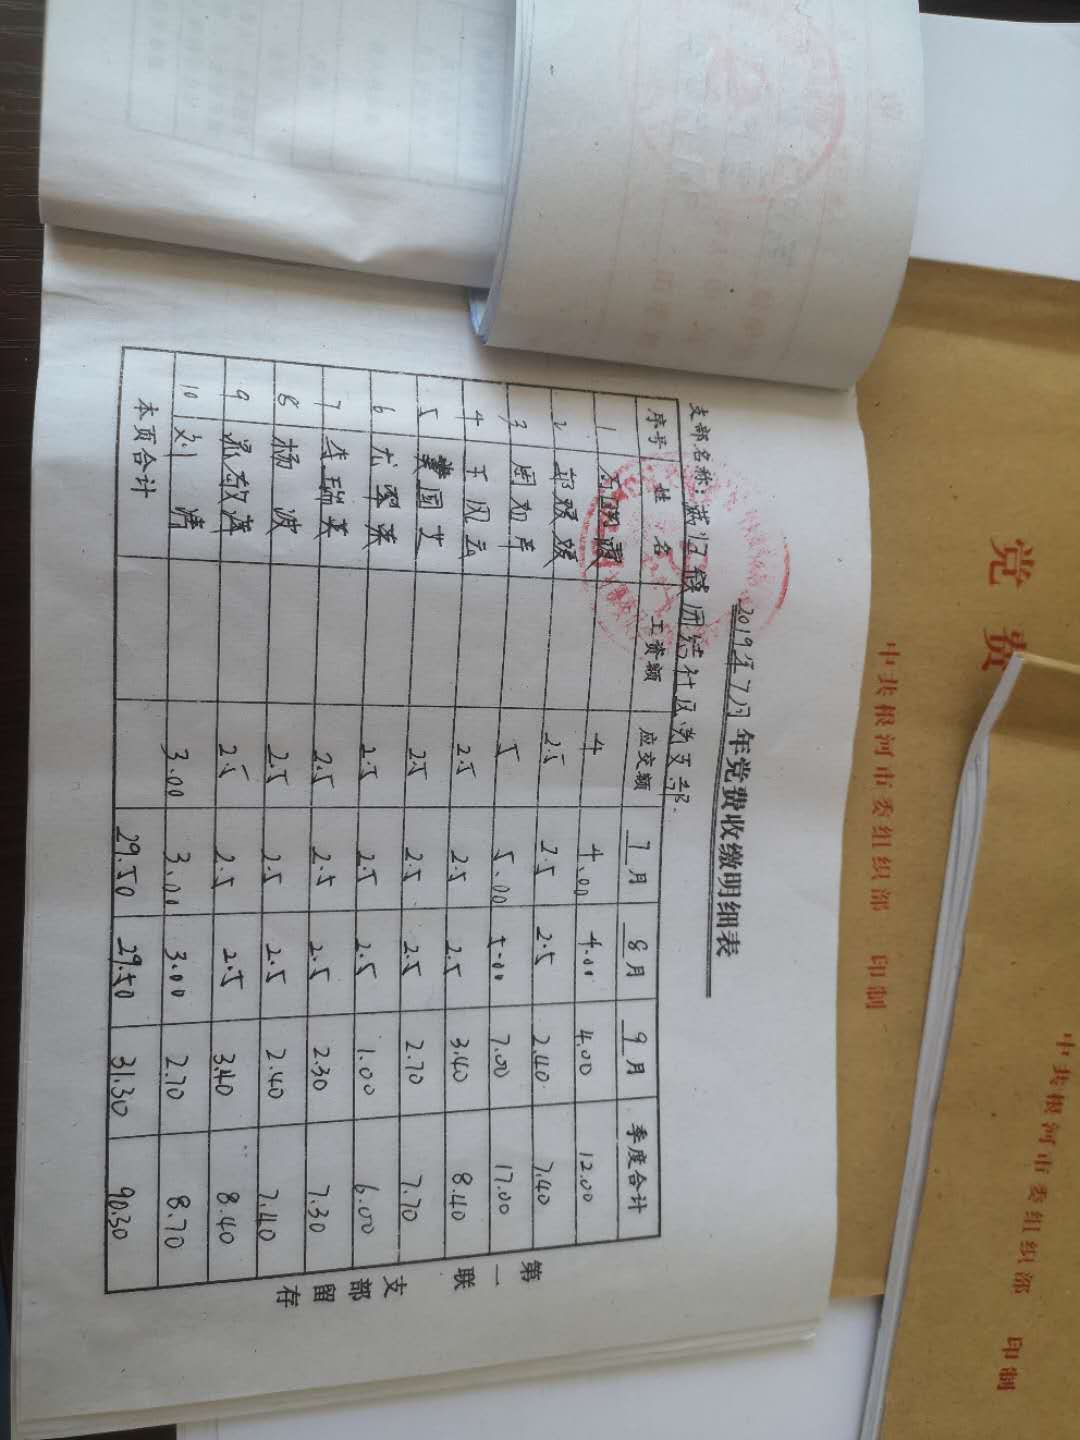 2019年7月 年党费收缴明细表
支部名称: 团结社区党支部.
序号 姓名 工资额 应交额 7月 8月 9月 季度合计
1 4 4.00 4.00 4.00 12.00
2 郭媛媛 2.5 2.5 2.5 2.40 7.40
3 5 5.00 5.00 7.00 17.00
4 王凤云 2.5 2.5 2.5 3.40 8.40
5 2.5 2.5 2.5 2.70 7.70
6 2.5 2.5 2.5 1.00 6.00
7 李瑞英 2.5 2.5 2.5 2.30 7.30
8 杨波 2.5 2.5 2.5 2.40 7.40
9 2.5 2.5 2.5 3.40 8.40
10 刘清 3.00 3.00 3.00 2.70 8.70
本页合计 29.50 29.50 31.30 90.30
第一联 支部留存
党费
中共根河市委组织部 印制
中共根河市委组织部 印制